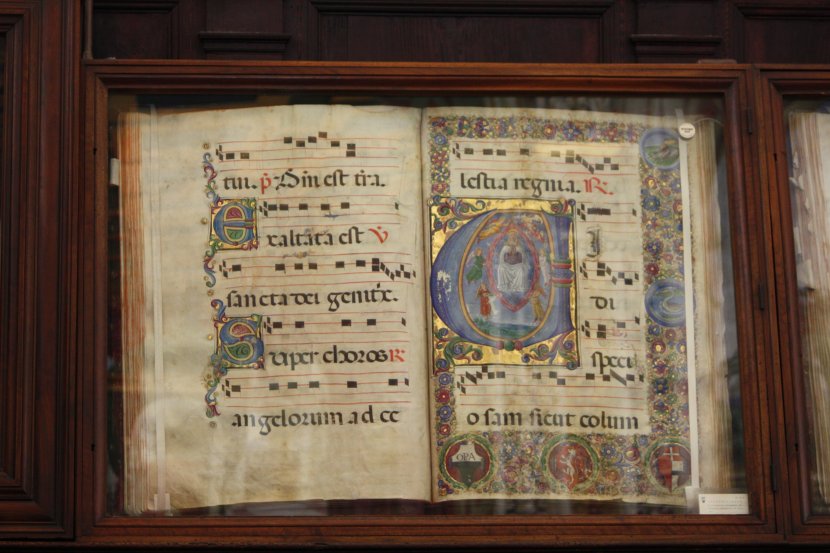 tui. p̄s Din est tr̄a.
Exaltata est V
sancta dei genitx.
Super choros R
angelorum ad ce
lestia regina. R
V I
di
speci
o sam sicut colum
OPA